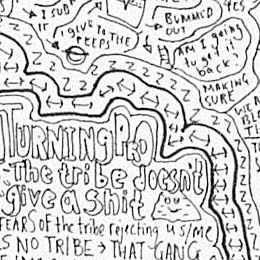 I SUB
IF
I GIVE TO THE
PEEPS
BUMMED
OUT
YES
AM I going
to get it
back?
MAKING
SURE
WE A
TURNING PRO
The tribe doesn't
give a shit
FEARS of the tribe rejecting us/me
S NO TRIBE → THAT GANG